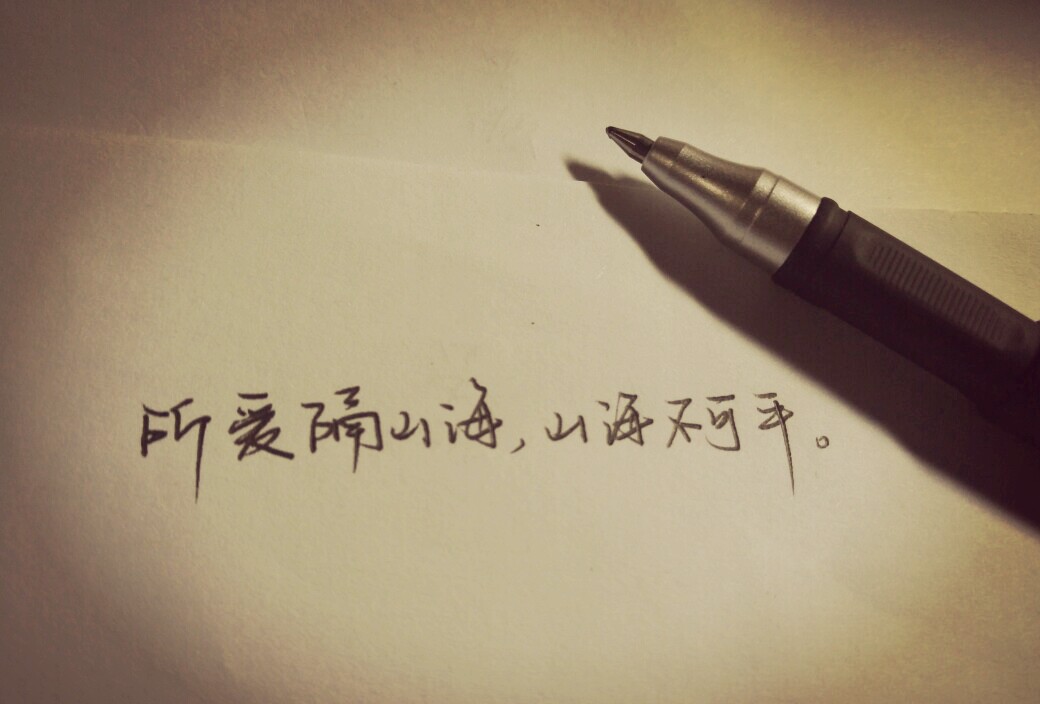 所爱隔山海,山海不可平。